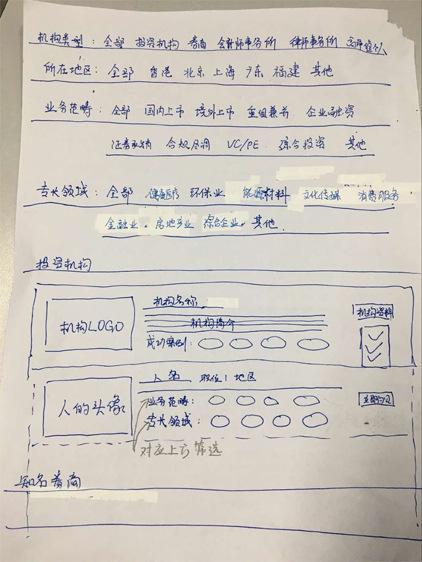 机构类型：全部 投资机构 券商 会计师事务所 律师事务所
所在地区：全部 香港 北京 上海 广东 福建 其他
业务范畴：全部 国内上市 境外上市 重组兼并 企业融资
证券承销 合规风调 VC/PE 综合投资 其他
专长领域：全部 健康医疗 环保业 能源材料 文化传媒 消费及服务
金融业 房地产业 综合企业 其他
投资机构
机构名称
机构LOGO
机构简介
机构资料
成功案例：
人名 职位 | 地区
人的头像
业务范畴：
专长领域：
对应上方筛选
知名券商